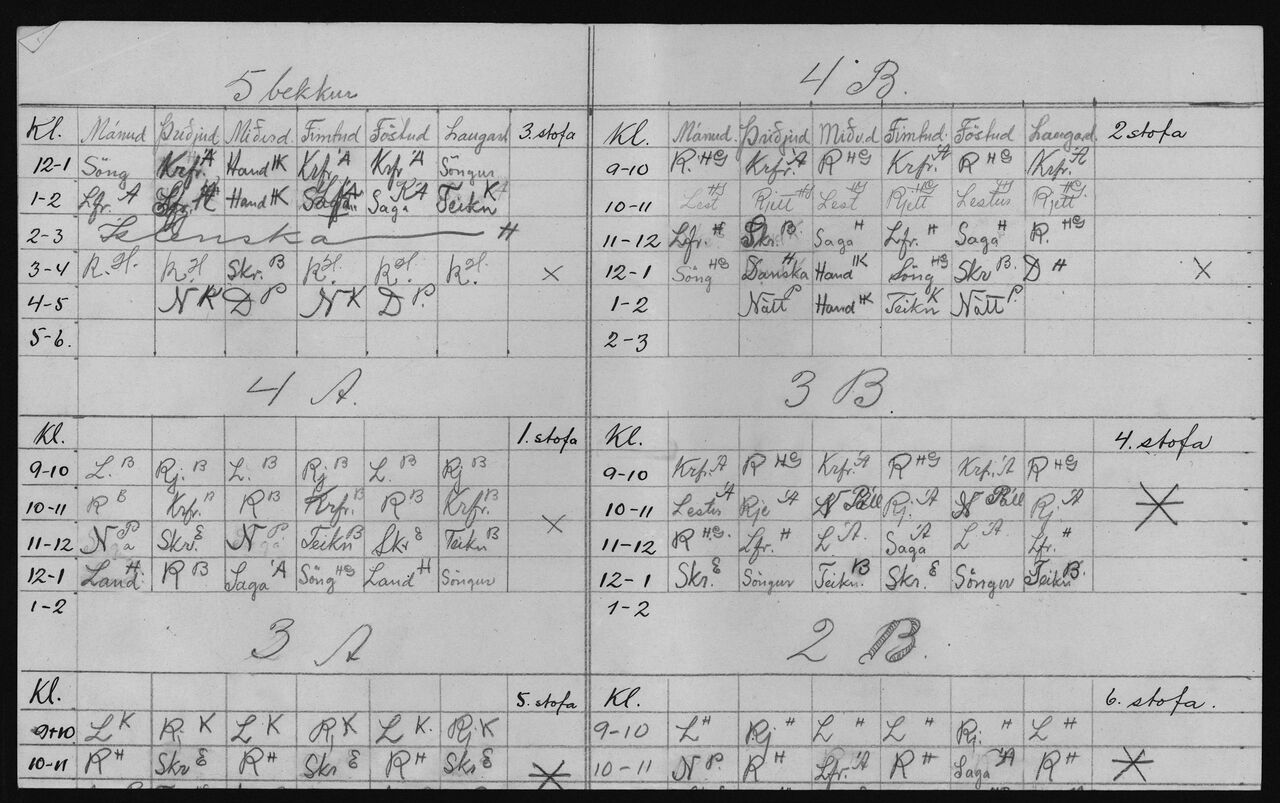 5 bekkur
Kl. Mánud Þriðjud Miðvd Fimtud Föstud Laugard 3. stofa
12-1 Söng Krfr. Á Hand HK Krfr. Á Krfr Á Söngur
1-2 Lfr. Á Hand HK Saga KÁ Teikn K
2-3 Íslenska H
3-4 R. H. R. H Skr. B R. H. R. H. R. H. ×
4-5 N K D P N K D P.
5-6.
4 B.
Kl. Mánud. Þriðjud. Miðvd Fimtud. Föstud Laugad. 2 stofa
9-10 R. HG Krfr. Á R HG Krfr. Á R HG Krfr. Á
10-11 Lest HG Rjett HG Lest HG Rjett HG Lestur HG Rjett HG
11-12 Lfr. H Skr. B. Saga H Lfr. H Saga H R. HG
12-1 Söng HG Danska H Hand HK Söng HG Skr B. D H ×
1-2 Nátt P Hand HK Teikn K Nátt P.
2-3
4 A.
Kl. 1. stofa
9-10 L. B Rj. B L. B Rj. B L. B Rj B
10-11 R B Krfr. B R B Krfr. B R B Krfr. B ×
11-12 N P Skr. E N P. Teikn B Skr E Teikn B
12-1 Land H R B Saga Á Söng HG Land H Söngur
1-2
3 B
Kl. 4. stofa
9-10 Krfr. Á R HG Krfr. Á R HG Krfr. Á R HG
10-11 Lestur Á Rje Á N Páll Rj. Á N Páll Rj. Á
11-12 R HG. Lfr. H L Á. Saga Á L Á. Lfr. H
12-1 Skr. E Söngur Teikn. B Skr. E Söngur Teikn B.
1-2
3 A
Kl. 5. stofa
9+10 L K Rj. K L K Rj K L K. Rj. K
10-11 R H Skr E R H Skr E R H Skr. E
2 B.
Kl. 6. stofa.
9-10 L H Rj H L H L H Rj. H L H
10-11 N P. R H Lfr. Á R H Saga Á R H